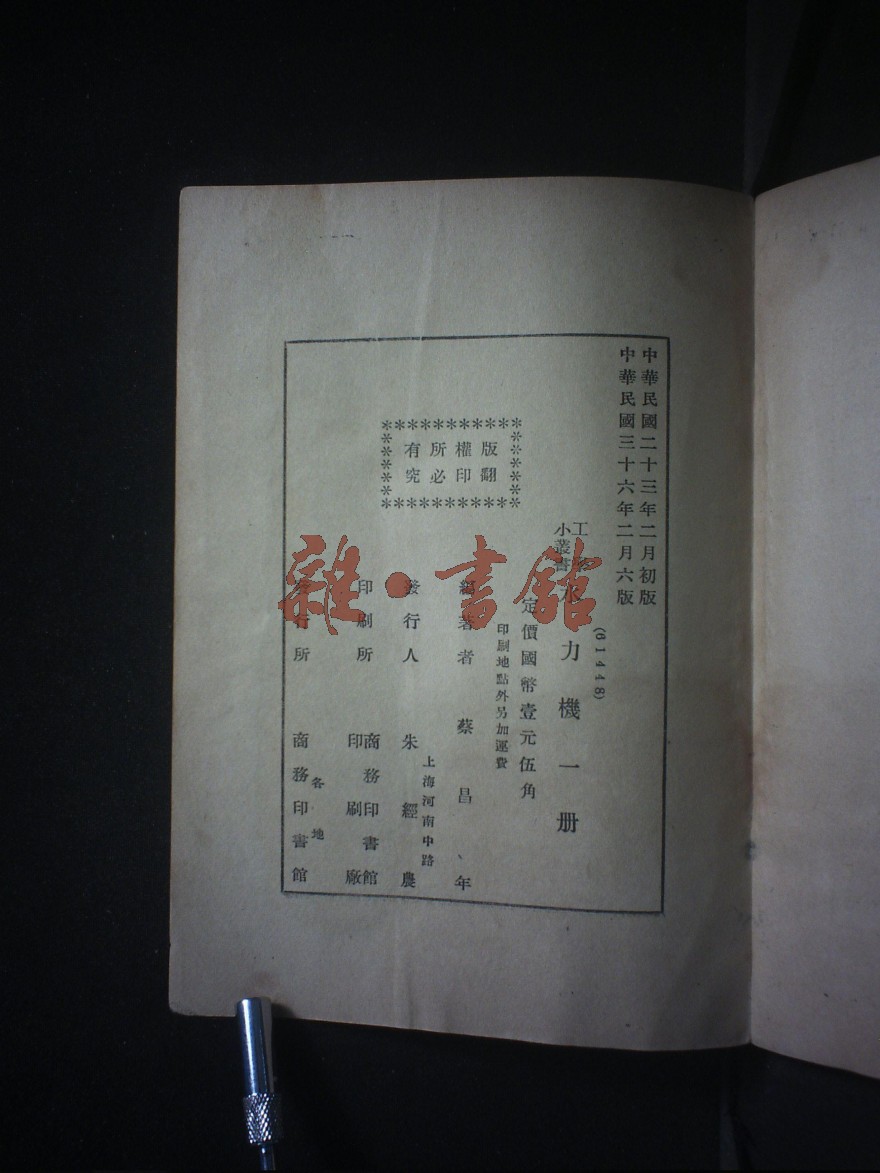 中華民國二十三年二月初版
中華民國三十六年二月六版
(61448)
工學
小叢書
水力機一册
定價國幣壹元伍角
印刷地點外另加運費
版權所有
翻印必究
編著者 蔡昌年
上海河南中路
發行人 朱經農
印刷所 商務印書館
印刷廠
各地
發行所 商務印書館
雜·書館